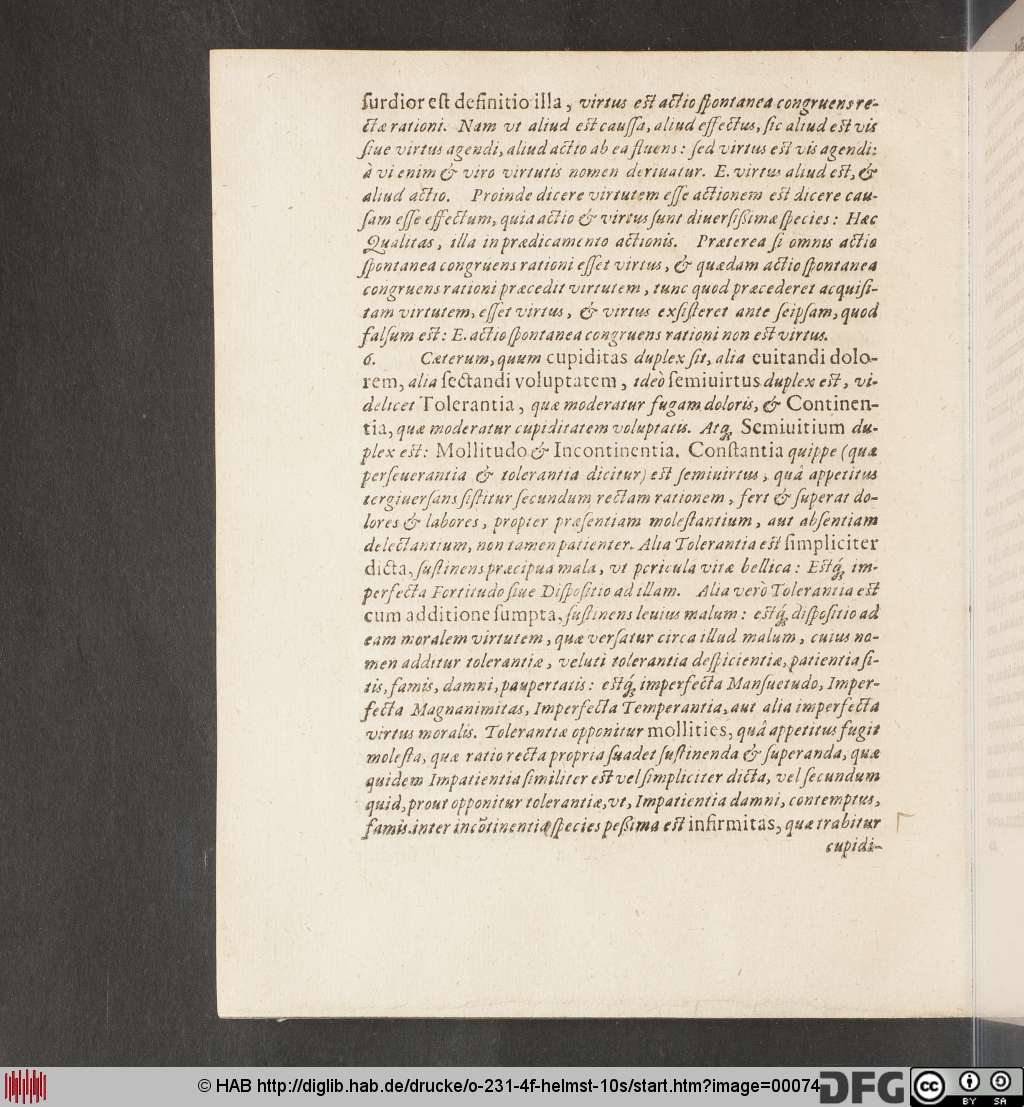 ſurdior eſt definitio illa, virtus eſt actio ſpontanea congruens re-
ctæ rationi. Nam vt aliud eſt cauſſa, aliud effectus, ſic aliud eſt vis
ſiue virtus agendi, aliud actio ab ea fluens: ſed virtus eſt vis agendi:
à vi enim & viro virtutis nomen deriuatur. E. virtus aliud eſt, &
aliud actio. Proinde dicere virtutem eſſe actionem eſt dicere cau-
ſam eſſe effectum, quia actio & virtus ſunt diuerſißimæ ſpecies: Hæc
Qualitas, illa in prædicamento actionis. Præterea ſi omnis actio
ſpontanea congruens rationi eſſet virtus, & quædam actio ſpontanea
congruens rationi præcedit virtutem, tunc quod præcederet acquiſi-
tam virtutem, eſſet virtus, & virtus exſiſteret ante ſeipſam, quod
falſum eſt: E. actio ſpontanea congruens rationi non eſt virtus.
6. Cæterum, quum cupiditas duplex ſit, alia euitandi dolo-
rem, alia ſectandi voluptatem, ideò ſemiuirtus duplex eſt, vi-
delicet Tolerantia, quæ moderatur fugam doloris, & Continen-
tia, quæ moderatur cupiditatem voluptatis. Atq́ꝫ Semiuitium du-
plex eſt: Mollitudo & Incontinentia. Conſtantia quippe (quæ
perſeuerantia & tolerantia dicitur) eſt ſemiuirtus, quâ appetitus
tergiuerſans ſiſtitur ſecundum rectam rationem, fert & ſuperat do-
lores & labores, propter præſentiam moleſtantium, aut abſentiam
delectantium, non tamen patienter. Alia Tolerantia eſt ſimpliciter
dicta, ſuſtinens præcipua mala, vt pericula vitæ bellica: Eſtq́ꝫ im-
perfecta Fortitudo ſiue Diſpoſitio ad illam. Alia verò Tolerantia eſt
cum additione ſumpta, ſuſtinens leuius malum: eſtq́ꝫ diſpoſitio ad
eam moralem virtutem, quæ verſatur circa illud malum, cuius no-
men additur tolerantiæ, veluti tolerantia deſpicientiæ, patientia ſi-
tis, famis, damni, paupertatis: eſtq́ꝫ imperfecta Manſuetudo, Imper-
fecta Magnanimitas, Imperfecta Temperantia, aut alia imperfecta
virtus moralis. Tolerantiæ opponitur mollities, quâ appetitus fugit
moleſta, quæ ratio recta propria ſuadet ſuſtinenda & ſuperanda, quæ
quidem Impatientia ſimiliter eſt vel ſimpliciter dicta, vel ſecundum
quid, prout opponitur tolerantiæ, vt, Impatientia damni, contemptus,
famis. inter incōtinentiæ ſpecies peßima eſt infirmitas, quæ trabitur
cupidi-
© HAB http://diglib.hab.de/drucke/o-231-4f-helmst-10s/start.htm?image=00074
DFG
cc BY SA